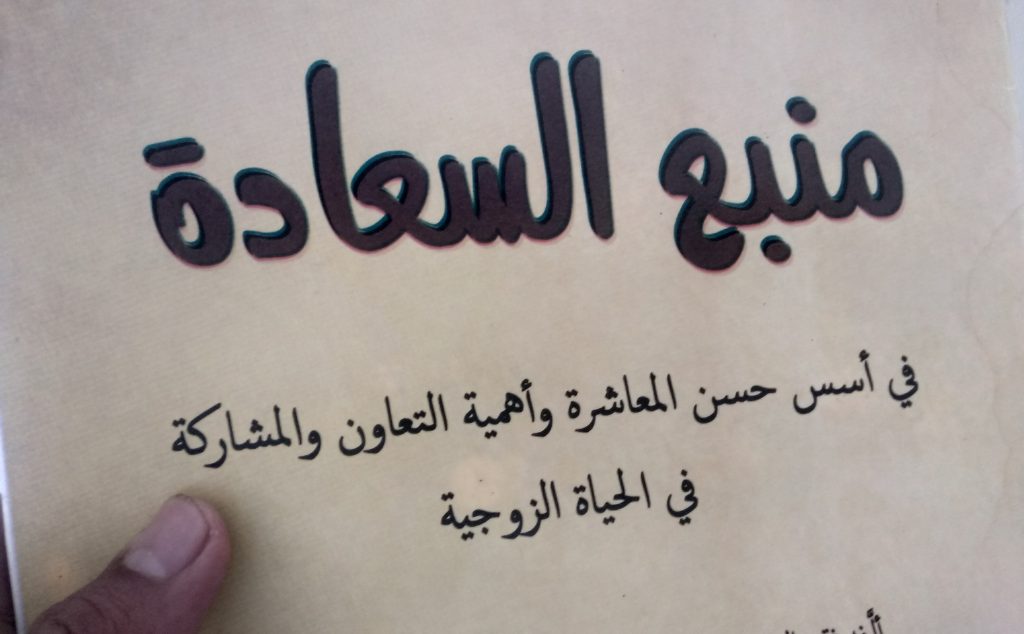 منبع السعادة
في أسس حسن المعاشرة وأهمية التعاون والمشاركة
في الحياة الزوجية